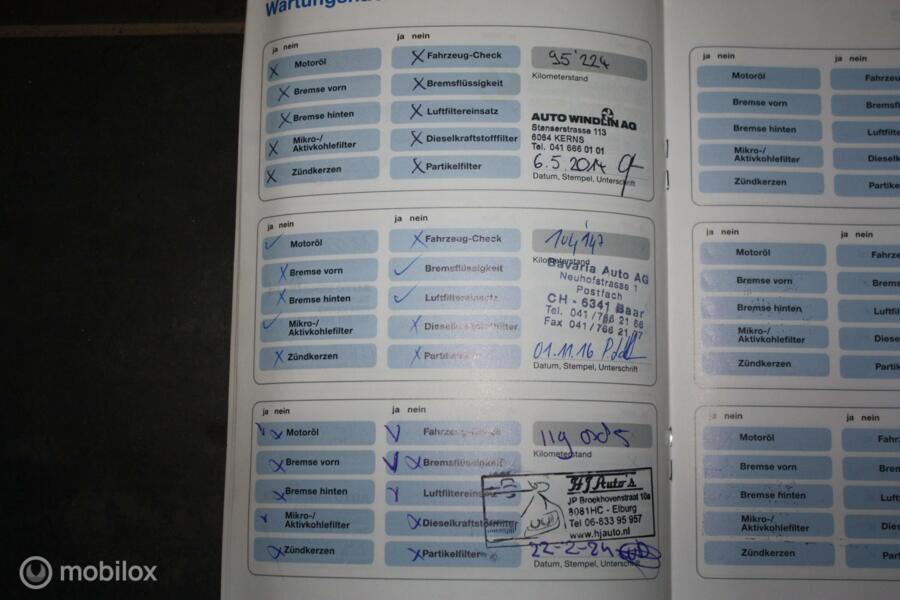 ja nein
ja nein
Motoröl
Bremse vorn
Bremse hinten
Mikro-/
Aktivkohlefilter
Zündkerzen
Fahrzeug-Check
Bremsflüssigkeit
Luftfiltereinsatz
Dieselkraftstofffilter
Partikelfilter
95'224
Kilometerstand
AUTO WINDLIN AG
Stanserstrasse 113
6064 KERNS
Tel. 041 666 01 01
6.5.2014
Datum, Stempel, Unterschrift
ja nein
ja nein
Motoröl
Bremse vorn
Bremse hinten
Mikro-/
Aktivkohlefilter
Zündkerzen
Fahrzeug-Check
Bremsflüssigkeit
Luftfiltereinsatz
Dieselkraftstofffilter
104'147
Kilometerstand
Bavaria Auto AG
Neuhofstrasse 1
Postfach
CH - 6341 Baar
Tel. 041/766 21 66
Fax 041/766 21
01.11.16
Datum, Stempel, Unterschrift
ja nein
ja nein
Motoröl
Bremse vorn
Bremse hinten
Mikro-/
Aktivkohlefilter
Zündkerzen
Fahrzeug-Check
Bremsflüssigkeit
Luftfiltereinsatz
Dieselkraftstofffilter
Partikelfilter
119
Kilometerstand
HJ Auto's
JP Broekhovenstraat 10a
8081HC - Elburg
Tel 06-833 95 957
www.hjauto.nl
22-2-24
Datum, Stempel, Unterschrift
ja nein
ja nein
Motoröl
Bremse vorn
Bremse hinten
Mikro-/
Aktivkohlefilter
Zündkerzen
ja nein
ja nein
Motoröl
Bremse vorn
Bremse hinten
Mikro-/
Aktivkohlefilter
Zündkerzen
ja nein
ja nein
Motoröl
Bremse vorn
Bremse hinten
Mikro-/
Aktivkohlefilter
Zündkerzen
mobilox